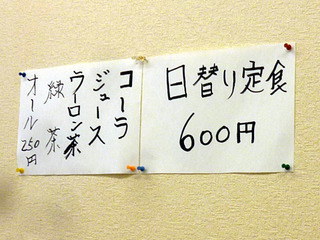 日替り定食
600円
コーラ
ジュース
ウーロン茶
緑茶
オール250円